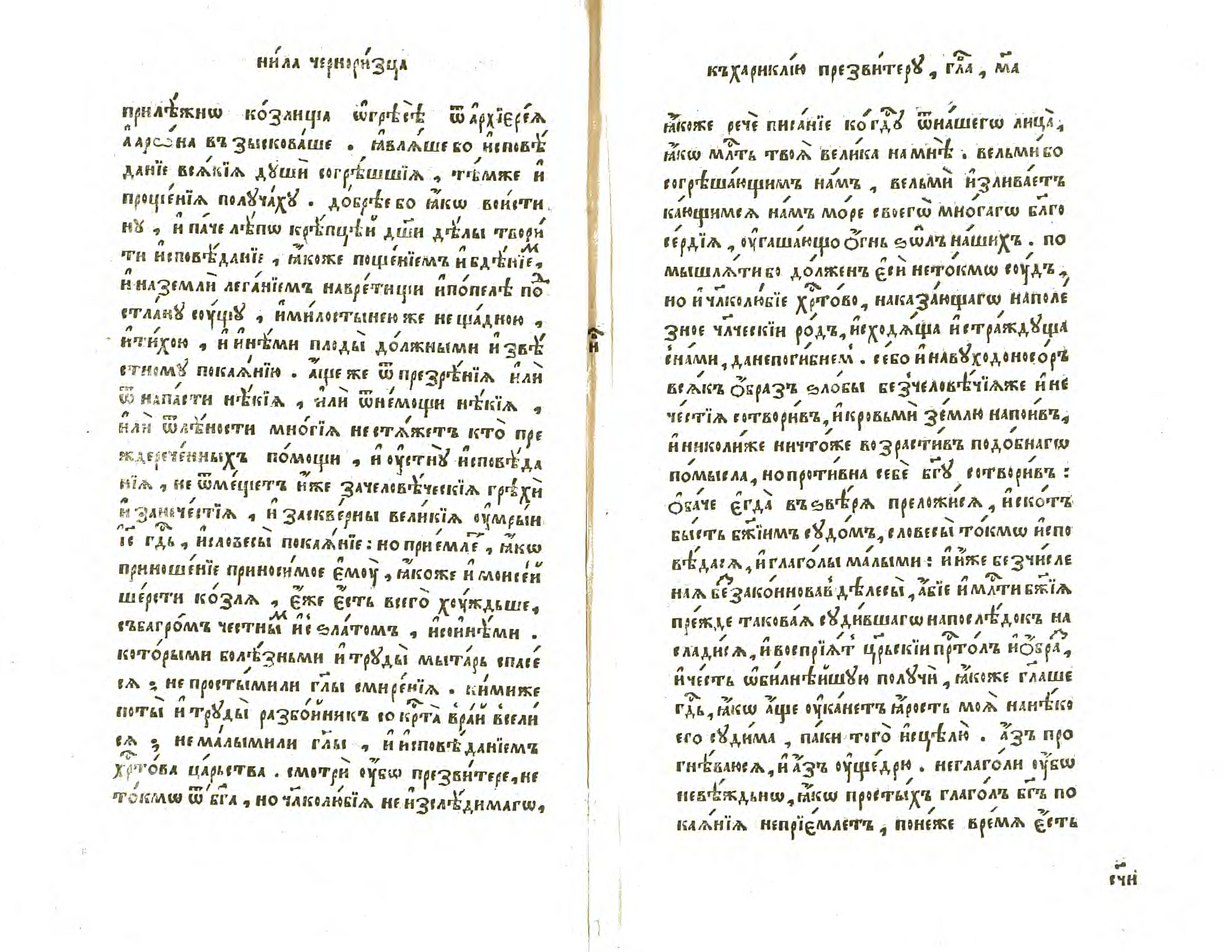 ни́ла чернори́зца
прилѣ́жнѡ ко́злища ѡ҆грѣсѣ̀ ѿ а҆рхїере́ѧ
а҆арѡ́на въ зыскова́ше . ꙗ҆влѧ́ше бо и҆сповѣ́
да́нїе всѧ́кїѧ душѝ согрѣ́шшїѧ , тѣ́мже и҆
проще́нїѧ получа́ху . до́брѣе бо ꙗ҆́кѡ вои́сти
ну , и҆ па́че лѣ́пѡ крѣ́пцѣй дш҃и дѣ́лы твори́
ти и҆сповѣ́данїе , ꙗ҆́коже поще́нїемъ и҆ бдѣ́нїеⷨ ,
и҆ на землѝ лега́нїемъ на вре́тищи и҆ по́пелѣ по
стла́ну су́щу , и҆ ми́лостынею же не ща́дною ,
и҆ ти́хою , и҆ и҆нѣ́ми плоды̀ до́лжными и҆ звѣ́
стному покаѧ́нїю . а҆́ще же ѿ презрѣ́нїѧ и҆лѝ
ѿ напа́сти нѣ́кїѧ , и҆лѝ ѿ не́мощи нѣ́кїѧ ,
и҆лѝ ѿ лѣ́ности мно́гїѧ не стѧ́жетъ кто̀ пре
ждерече́нныхъ по́мощи , и҆ ᲂу҆стну и҆сповѣ́да
нїѧ , не ѿме́щетъ и҆́же за человѣ́ческїѧ грѣхѝ
и҆ за нече́стїѧ , и҆ за скве́рны вели́кїѧ ᲂу҆мры́й
і҆е гдⷭ҇ь , и҆ словесы̀ покаѧ́нїе : но прїе́млеⷮ , ꙗ҆́кѡ
приноше́нїе приноси́мое є҆мᲂу̀ , ꙗ҆́коже и҆ моисе́й
ше́рсти ко́злѧ , є҆́же є҆́сть всего̀ хꙋ́ждьше ,
съ багро́мъ честныⷨ и҆ с ѕла́томъ , и҆ со и҆нѣ́ми .
кото́рыми болѣ́зньми и҆ труды̀ мыта́рь спасе́
сѧ ; не просты́ми ли гл҃ы смире́нїѧ . ки́ми же
поты̀ и҆ труды̀ разбо́йникъ со крⷭ҇та̀ в ра́й всели́
сѧ ; не ма́лыми ли гл҃ы , и҆ и҆сповѣ́данїемъ
хрⷭ҇то́ва ца́рьства . смотрѝ ᲂу҆́бѡ презви́тере , не
то́кмѡ ѿ бг҃а , но чл҃колю́бїѧ не и҆зслѣ́димагѡ ,
и҃
къ харикли́ю презви́теру , гла҃ , м҃а
ꙗ҆́коже речѐ писа́нїе ко гдⷭ҇у ѿ на́шегѡ лица̀ ,
ꙗ҆́кѡ млⷭ҇ть твоѧ̀ вели́ка на мнѣ̀ . вельмѝ бо
согрѣша́ющимъ на́мъ , вельмѝ и҆злива́етъ
ка́ющимсѧ на́мъ мо́ре своегѡ̀ мно́гагѡ бл҃го
се́рдїѧ , ᲂу҆гаша́ющо ѻ҆́гнь ѕѡ́лъ на́шихъ . по
мышлѧ́ти бо до́лженъ є҆сѝ не то́кмѡ су́дъ ,
но и҆ чл҃колю́бїе хрⷭ҇то́во , наказа́ющагѡ на поле́
зное чл҃ческїи ро́дъ , и҆сходѧ́ща и҆ стра́ждуща
с на́ми , да не поги́бнемъ . се́ бо и҆ навуходоносо́ръ
всѧ́къ ѻ҆́бразъ ѕло́бы безчеловѣ́чїѧже и҆ не
че́стїѧ сотвори́въ , и҆ кровьмѝ зе́млю напои́въ ,
и҆ николи́же ничто́же возрасти́въ подо́бнагѡ
по́мысла , но проти́вна себѐ бг҃у сотвори́въ :
ѻ҆ба́че є҆гда̀ въ ѕвѣ́рѧ преложи́сѧ , и҆ ско́тъ
бы́сть бж҃їимъ судо́мъ , словесы̀ то́кмѡ и҆спо
вѣ́дасѧ , и҆ глаго́лы ма́лыми : и҆ и҆́же безчи́сле
наѧ безⸯзако́нновавъ дѣ́лесы̀ , а҆́бїе и҆ млⷭ҇ти бж҃їѧ
пре́жде такова́ѧ суди́вшагѡ напослѣ́докъ на
слади́сѧ , и҆ воспрїѧ́тъ црⷭ҇ьскїи прⷭ҇то́лъ и҆ ѻ҆́браⷥ ,
и҆ че́сть ѡ҆би́лнѣйшую получѝ , ꙗ҆́коже гл҃аше
гдⷭ҇ь , ꙗ҆́кѡ а҆́ще ᲂу҆ка́нетъ ꙗ҆́рость моѧ̀ на нѣ́ко
его суди́ма , па́ки того̀ и҆сцѣлю̀ . а҆́зъ про
гнѣ́ваюсѧ , и҆ а҆́зъ ᲂу҆ще́дрю . не глаго́ли ᲂу҆́бѡ
невѣ́ждьнѡ , ꙗ҆́кѡ просты́хъ глаго́лъ бг҃ъ по
каѧ́нїѧ не прїе́млетъ , поне́же вре́мѧ є҆́сть
сч҃и